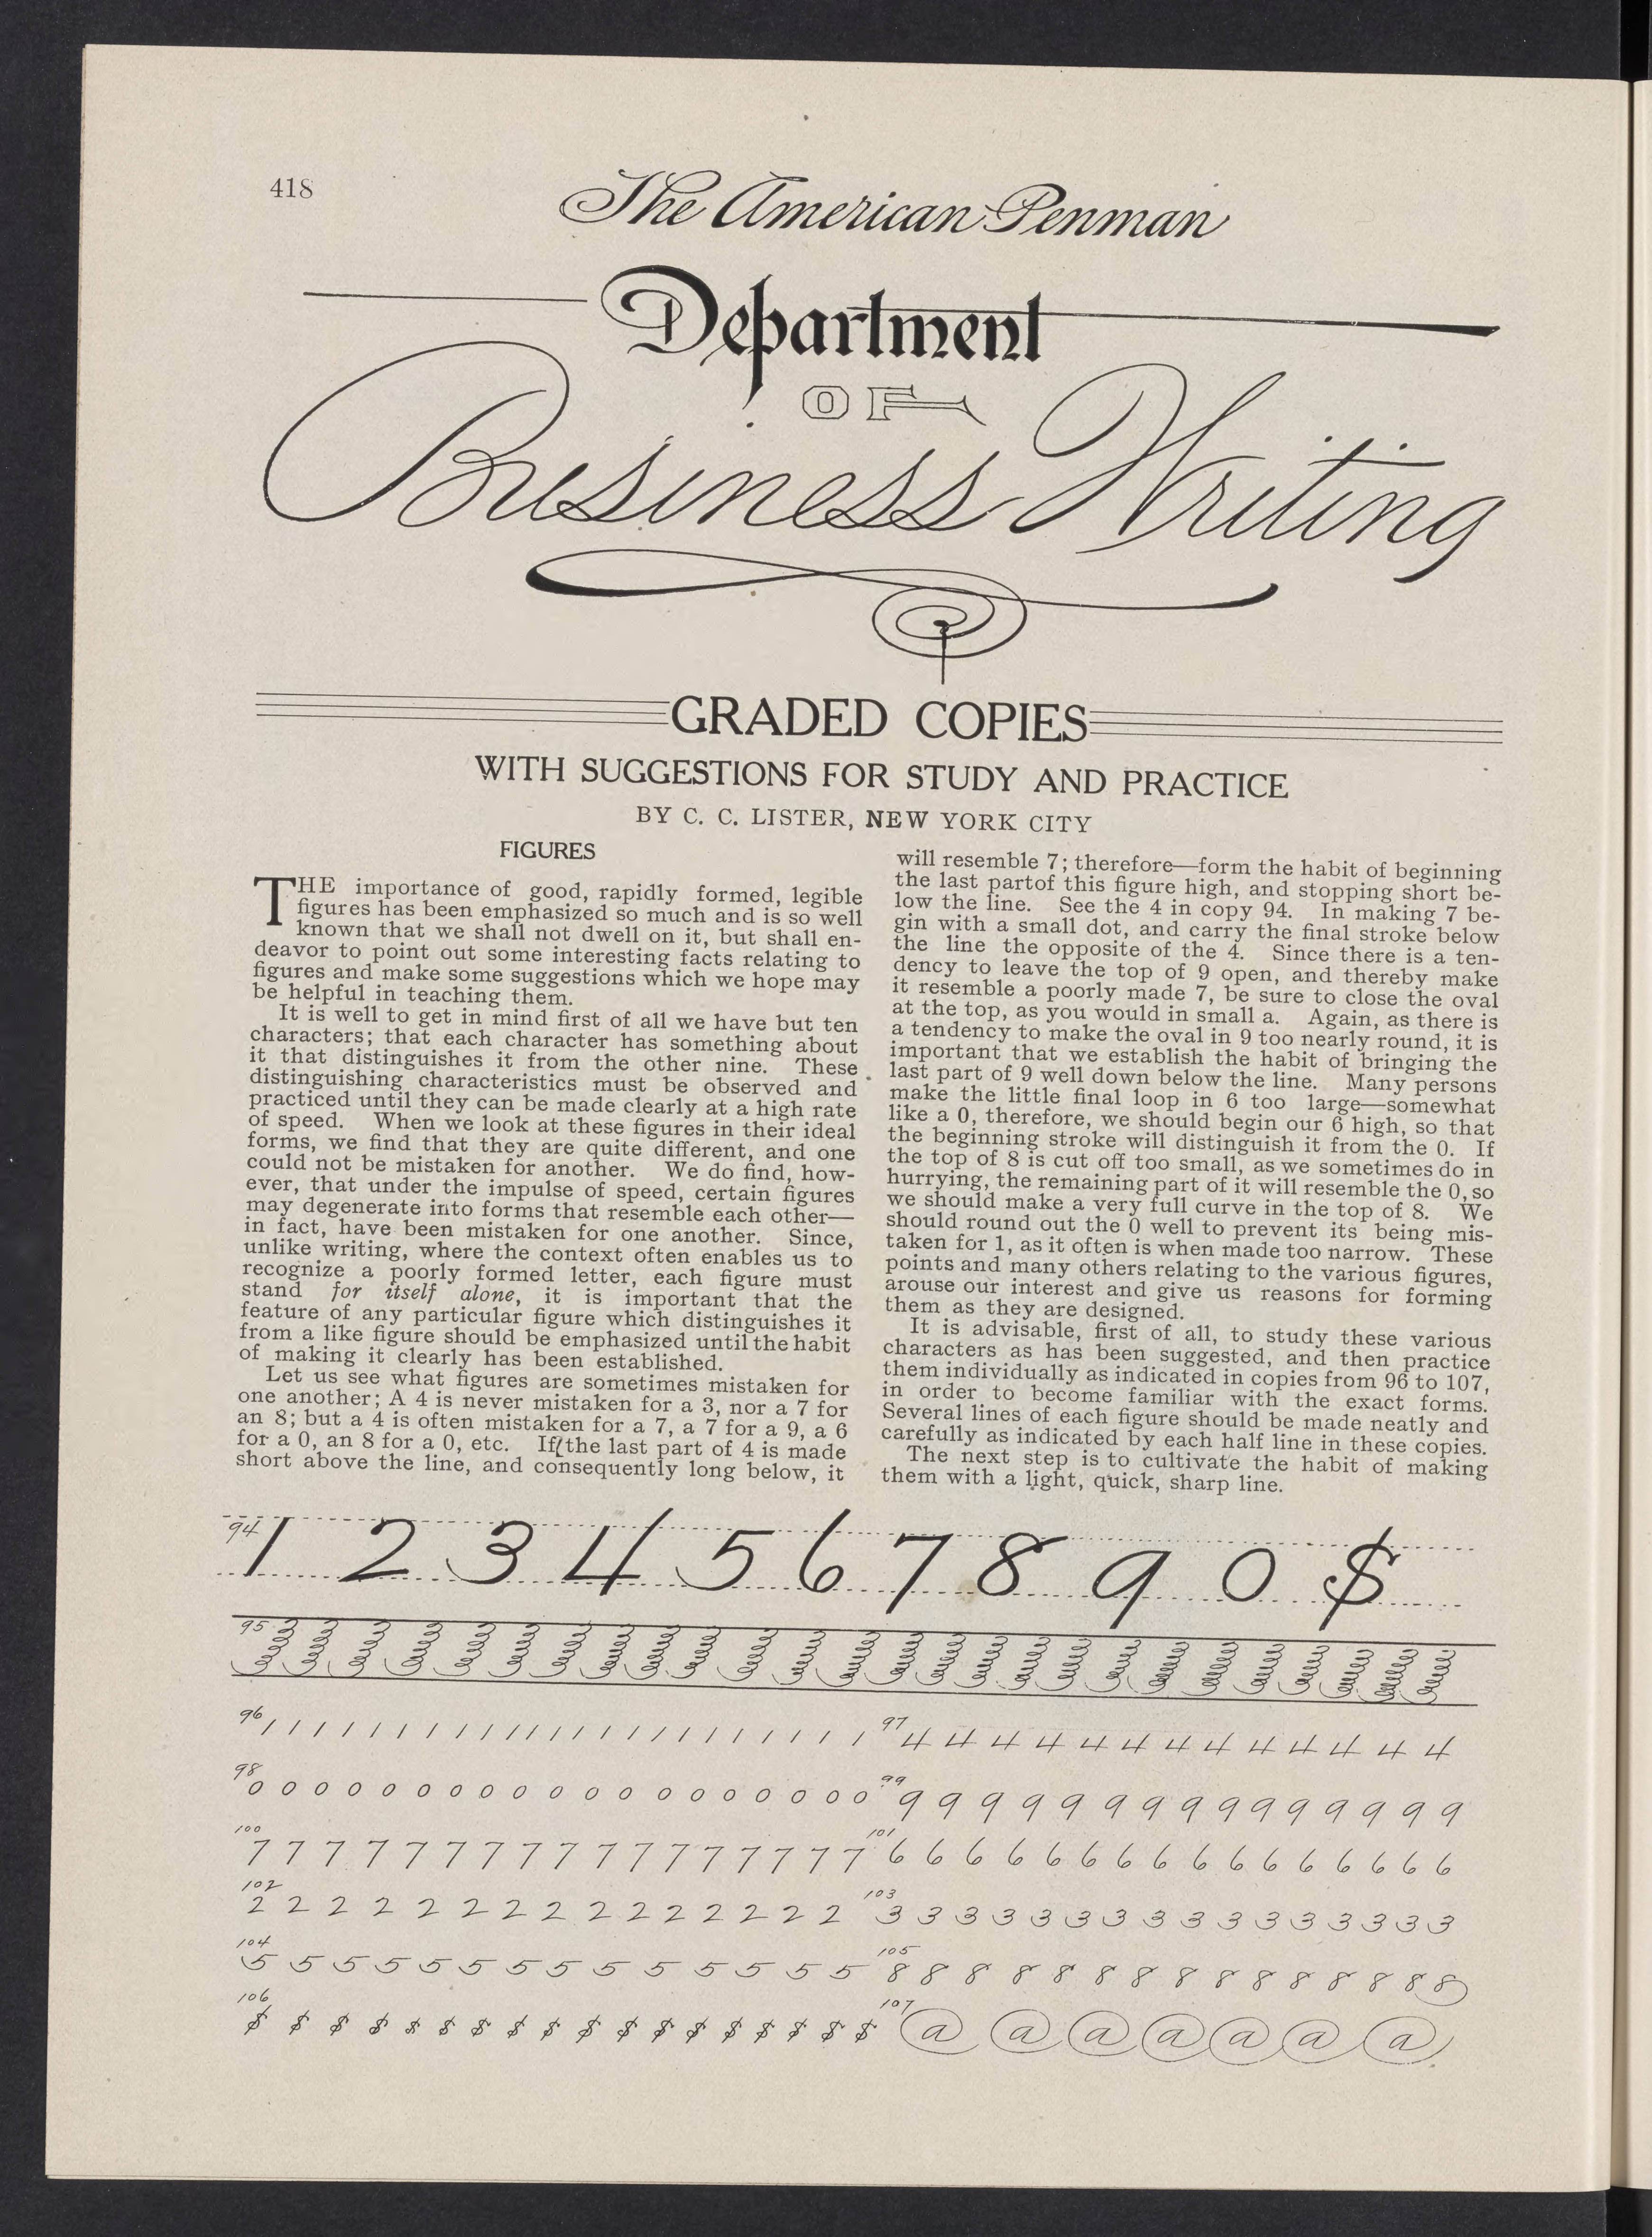 418
The American Penman
Department
OF
Business Writing
GRADED COPIES
WITH SUGGESTIONS FOR STUDY AND PRACTICE
BY C. C. LISTER, NEW YORK CITY
FIGURES
THE importance of good, rapidly formed, legible
figures has been emphasized so much and is so well
known that we shall not dwell on it, but shall en-
deavor to point out some interesting facts relating to
figures and make some suggestions which we hope may
be helpful in teaching them.
It is well to get in mind first of all we have but ten
characters; that each character has something about
it that distinguishes it from the other nine. These
distinguishing characteristics must be observed and
practiced until they can be made clearly at a high rate
of speed. When we look at these figures in their ideal
forms, we find that they are quite different, and one
could not be mistaken for another. We do find, how-
ever, that under the impulse of speed, certain figures
may degenerate into forms that resemble each other—
in fact, have been mistaken for one another. Since,
unlike writing, where the context often enables us to
recognize a poorly formed letter, each figure must
stand for itself alone, it is important that the
feature of any particular figure which distinguishes it
from a like figure should be emphasized until the habit
of making it clearly has been established.
Let us see what figures are sometimes mistaken for
one another; A 4 is never mistaken for a 3, nor a 7 for
an 8; but a 4 is often mistaken for a 7, a 7 for a 9, a 6
for a 0, an 8 for a 0, etc. If the last part of 4 is made
short above the line, and consequently long below, it
will resemble 7; therefore—form the habit of beginning
the last partof this figure high, and stopping short be-
low the line. See the 4 in copy 94. In making 7 be-
gin with a small dot, and carry the final stroke below
the line the opposite of the 4. Since there is a ten-
dency to leave the top of 9 open, and thereby make
it resemble a poorly made 7, be sure to close the oval
at the top, as you would in small a. Again, as there is
a tendency to make the oval in 9 too nearly round, it is
important that we establish the habit of bringing the
last part of 9 well down below the line. Many persons
make the little final loop in 6 too large—somewhat
like a 0, therefore, we should begin our 6 high, so that
the beginning stroke will distinguish it from the 0. If
the top of 8 is cut off too small, as we sometimes do in
hurrying, the remaining part of it will resemble the 0, so
we should make a very full curve in the top of 8. We
should round out the 0 well to prevent its being mis-
taken for 1, as it often is when made too narrow. These
points and many others relating to the various figures,
arouse our interest and give us reasons for forming
them as they are designed.
It is advisable, first of all, to study these various
characters as has been suggested, and then practice
them individually as indicated in copies from 96 to 107,
in order to become familiar with the exact forms.
Several lines of each figure should be made neatly and
carefully as indicated by each half line in these copies.
The next step is to cultivate the habit of making
them with a light, quick, sharp line.
94 1 2 3 4 5 6 7 8 9 0 $
95
96 1 1 1 1 1 1 1 1 1 1 1 1 1 1 1 1 1 1 1 1 1 1 1
97 4 4 4 4 4 4 4 4 4 4 4 4 4
98 0 0 0 0 0 0 0 0 0 0 0 0 0 0 0 0 0 0 0
99 9 9 9 9 9 9 9 9 9 9 9 9 9 9 9
100 7 7 7 7 7 7 7 7 7 7 7 7 7 7 7 7 7
101 6 6 6 6 6 6 6 6 6 6 6 6 6 6 6 6
102 2 2 2 2 2 2 2 2 2 2 2 2 2 2 2
103 3 3 3 3 3 3 3 3 3 3 3 3 3 3 3 3
104 5 5 5 5 5 5 5 5 5 5 5 5 5 5
105 8 8 8 8 8 8 8 8 8 8 8 8 8 8 8
106 $ $ $ $ $ $ $ $ $ $ $ $ $ $ $ $ $ $
107 @ @ @ @ @ @ @